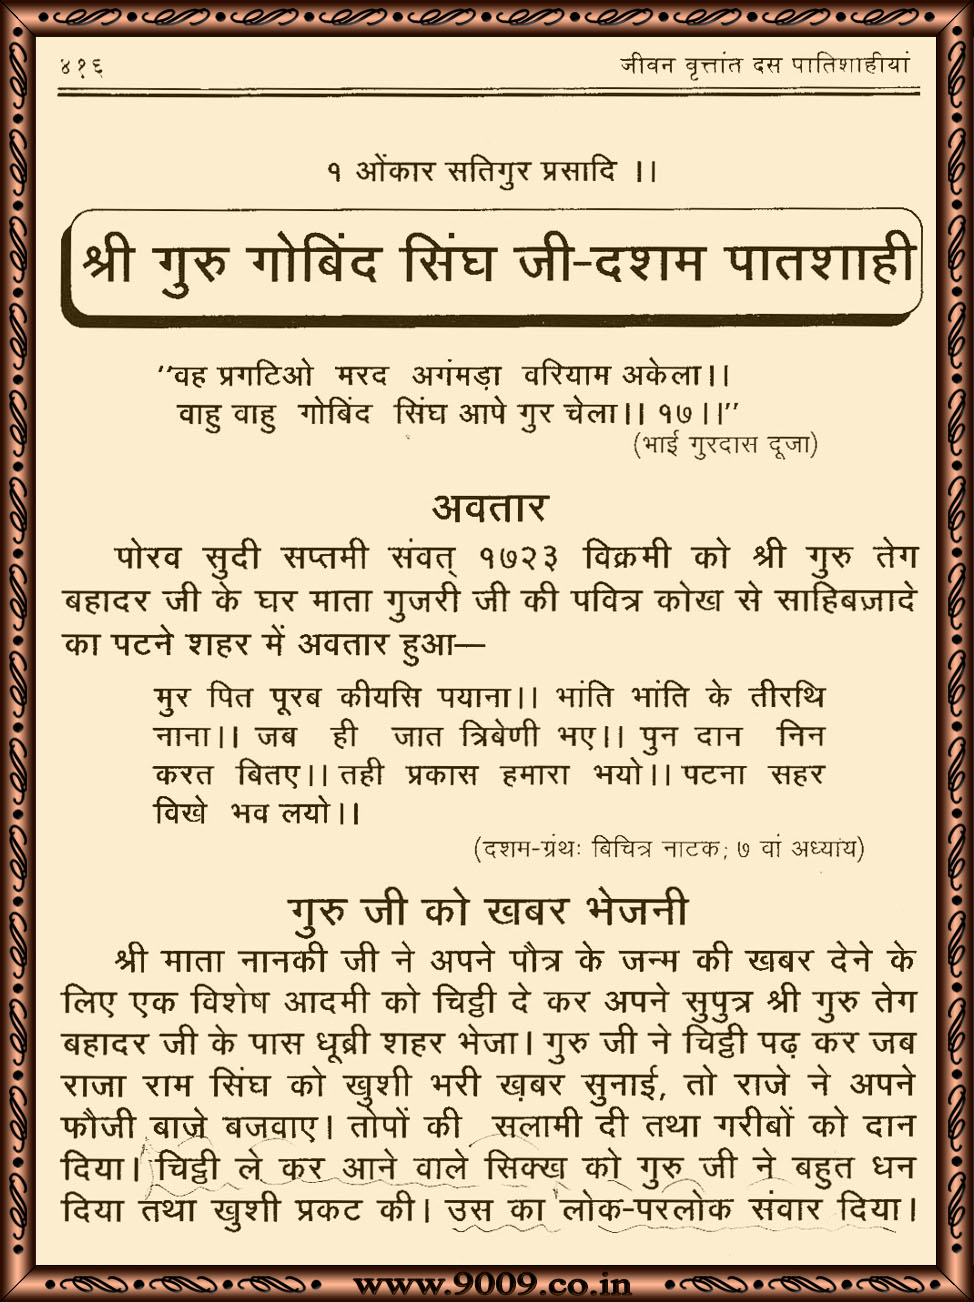 ४१६ जीवन वृत्तांत दस पातिशाहीयां
१ ओंकार सतिगुर प्रसादि ।।
श्री गुरु गोबिंद सिंघ जी-दशम पातशाही
''वह प्रगटिओ मरद अगंमड़ा वरियाम अकेला।।
वाहु वाहु गोबिंद सिंघ आपे गुर चेला।। १७।।''
(भाई गुरदास दूजा)
अवतार
पोरव सुदी सप्तमी संवत् १७२३ विक्रमी को श्री गुरु तेग
बहादर जी के घर माता गुजरी जी की पवित्र कोख से साहिबज़ादे
का पटने शहर में अवतार हुआ—
मुर पित पूरब कीयसि पयाना।। भांति भांति के तीरथि
नाना।। जब ही जात त्रिबेणी भए।। पुन दान निन
करत बितए।। तही प्रकास हमारा भयो।। पटना सहर
विखे भव लयो।।
(दशम-ग्रंथः बिचित्र नाटक; ७ वां अध्याय)
गुरु जी को खबर भेजनी
श्री माता नानकी जी ने अपने पौत्र के जन्म की खबर देने के
लिए एक विशेष आदमी को चिट्ठी दे कर अपने सुपुत्र श्री गुरु तेग
बहादर जी के पास धूब्री शहर भेजा। गुरु जी ने चिट्ठी पढ़ कर जब
राजा राम सिंघ को खुशी भरी ख़बर सुनाई, तो राजे ने अपने
फौजी बाजे बजवाए। तोपों की सलामी दी तथा गरीबों को दान
दिया। चिट्ठी ले कर आने वाले सिक्ख को गुरु जी ने बहुत धन
दिया तथा खुशी प्रकट की। उस का लोक-परलोक संवार दिया।
www.9009.co.in